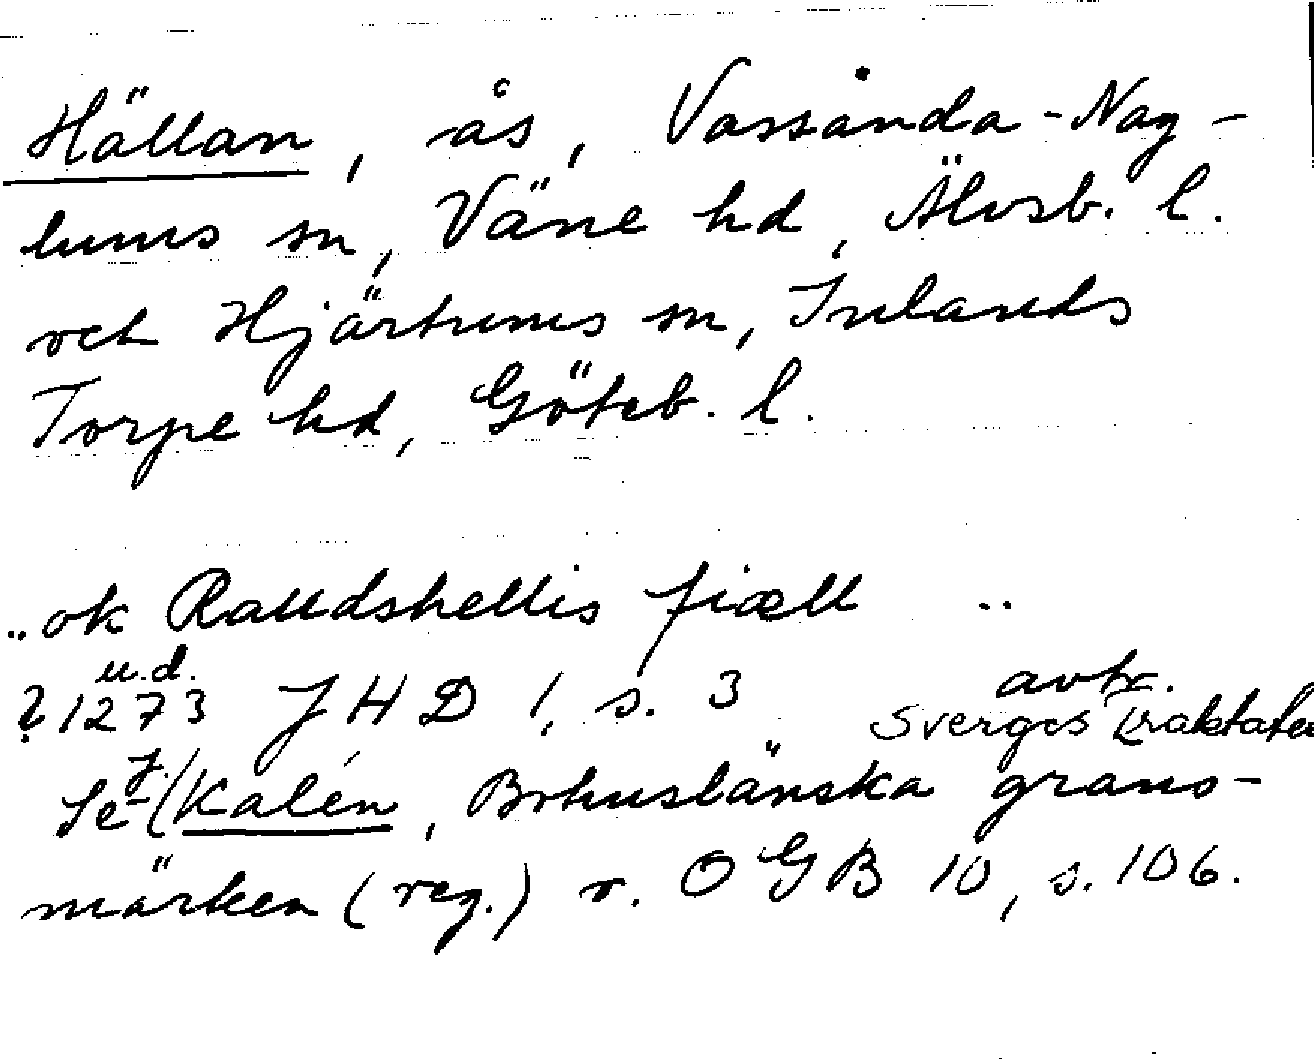 Hällan, ås, Vassända-Nag-
lums sn, Väne hd, Älvsb. l.
och Hjärtums sn, Inlands
Torpe hd, Göteb. l.
„ok Raudshellis fiæll ..
u.d.
? 1273 JHD 1, s. 3 avtr.
Sverges Traktater
Se J. (Kalén, Bohuslänska gräns-
märken (reg.) o. OGB 10, s. 106.